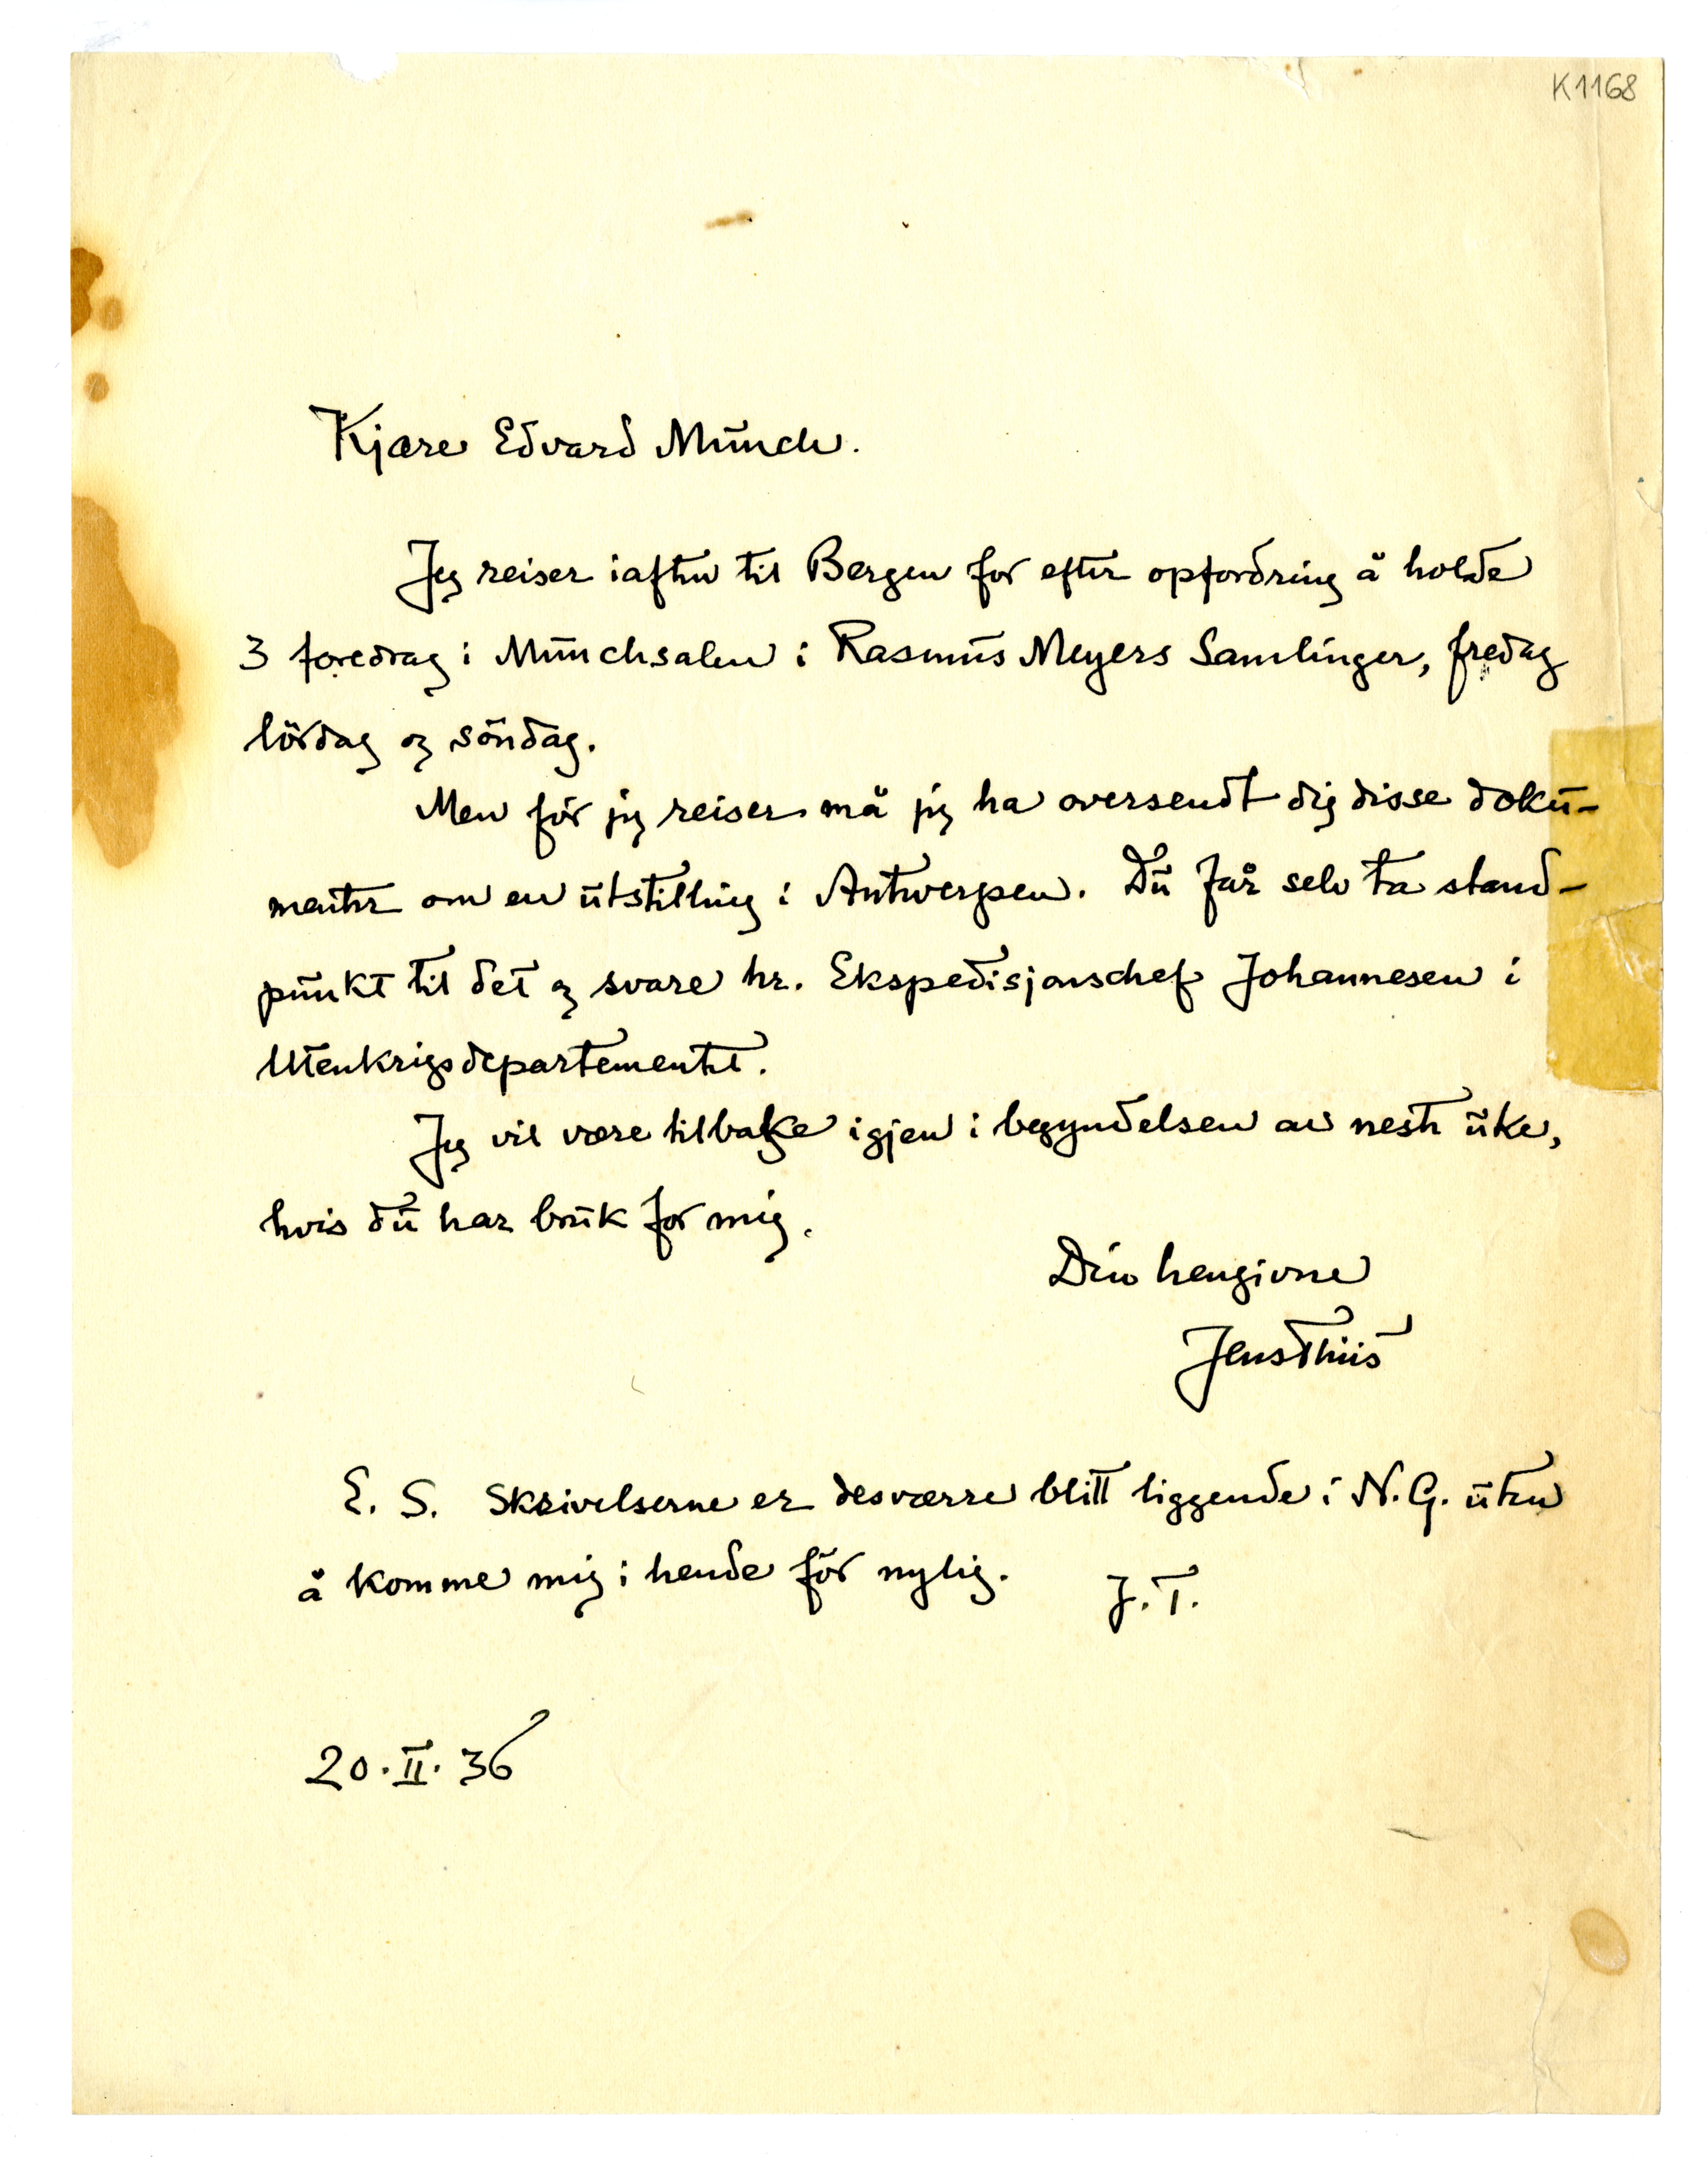 K1168
Kjære Edvard Munch.
Jeg reiser iaften til Bergen for efter opfordring å holde
3 foredrag i Munchsalen i Rasmus Meyers Samlinger, fredag
lördag og söndag.
Men för jeg reiser må jeg ha oversendt dig disse doku-
menter om en utstilling i Antwerpen. Du får selv ta stand-
punkt til det og svare hr. Ekspedisjonschef Johannesen i
Utenriksdepartementet.
Jeg vil være tilbake igjen i begyndelsen av neste uke,
hvis du har bruk for mig.
Din hengivne
Jens Thiis
E. S. Skrivelserne er desværre blitt liggende i N. G. uten
å komme mig i hende för nylig. J. T.
20. II. 36